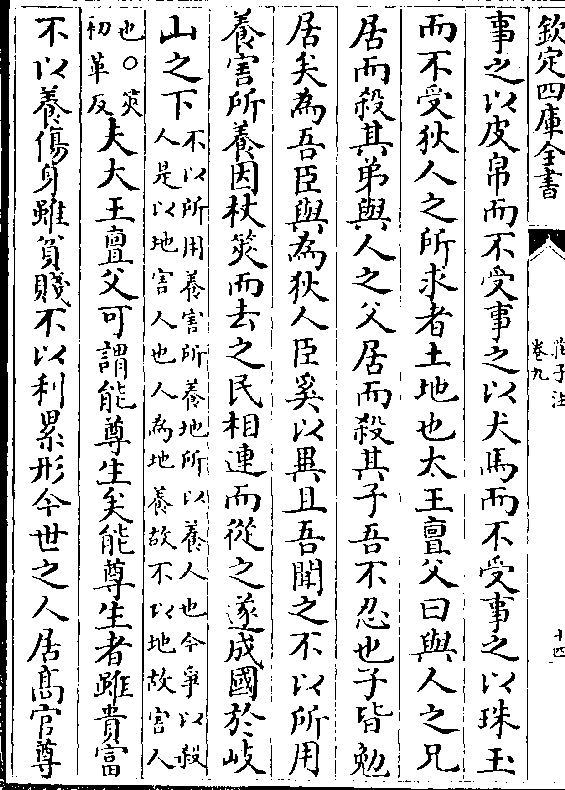 欽定四庫全書
莊子注
卷九
十四
事之以皮帛而不受事之以犬馬而不受事之以珠玉
而不受狄人之所求者土地也太王亶父曰與人之兄
居而殺其弟與人之父居而殺其子吾不忍也子皆勉
居矣為吾臣與為狄人臣奚以異且吾聞之不以所用
養害所養因杖筴而去之民相連而從之遂成國於岐
山之下
不以所用養害所養地所以養人也今爭以殺
人是以地害人也人為地養故不以地故害人
也○筴
初革反
夫大王亶父可謂能尊生矣能尊生者雖貴富
不以養傷身雖貧賤不以利累形今世之人居高官尊